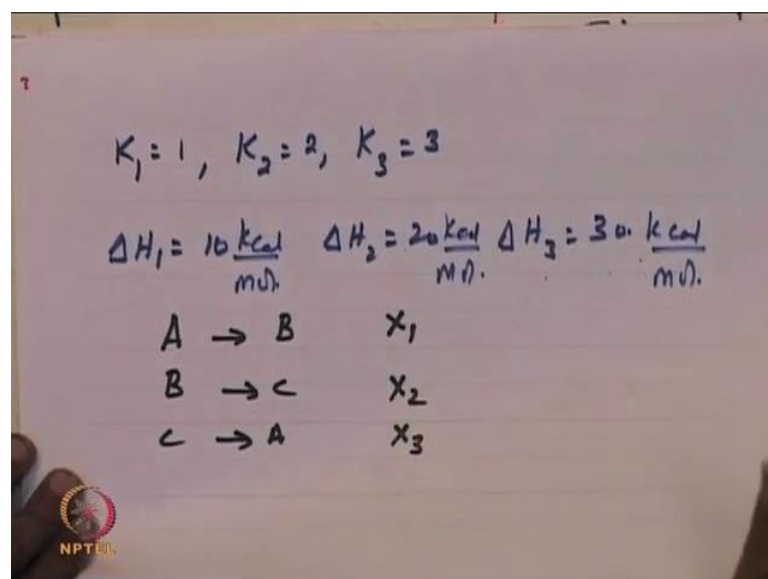 K₁ = 1, K₂ = 2, K₃ = 3
ΔH₁ = 10 kcal/mol. ΔH₂ = 20 kcal/mol. ΔH₃ = 30. kcal/mol.
A → B X₁
B → C X₂
C → A X₃
NPTEL